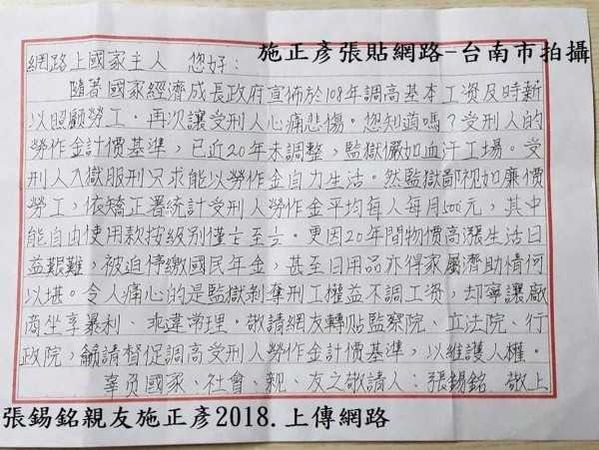 施正彥張貼網路-台南市拍攝
網路上國家主人 您好：
隨著國家經濟成長政府宣佈於108年調高基本工資及時薪
以照顧勞工，再次讓受刑人心痛悲傷。您知道嗎？受刑人的
勞作金計價基準，已近20年未調整，監獄儼如血汗工場。受
刑人入獄服刑只求能以勞作金自力生活。然監獄鄙視如廉價
勞工，依矯正署統計受刑人勞作金平均每人每月500元，其中
能自由使用款按級別僅 至 。更因20年間物價高漲生活日
益艱難，被迫停繳國民年金，甚至日用品亦得家屬濟助情何
以堪。令人痛心的是監獄剝奪刑工權益不調工資，却寧讓廠
商坐享暴利、乖違常理。敬請網友轉貼監察院、立法院、行
政院，籲請督促調高受刑人勞作金計價基準，以維護人權。
辜負國家、社會、親、友之敬請人：張錫銘 敬上
張錫銘親友施正彥2018.上傳網路